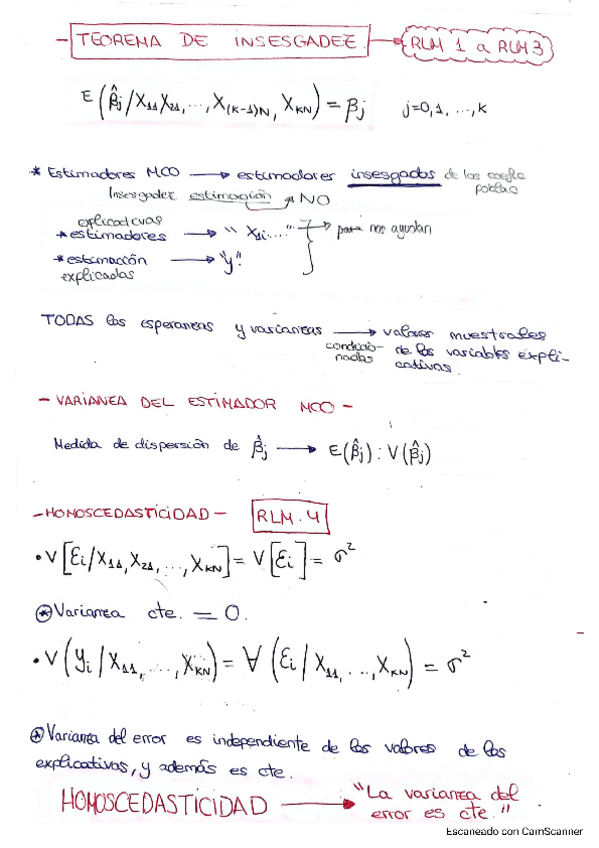 - TEOREMA DE INSESGADEZ. → RLM 1 a RLM 3
E(β̂j/X11,X21,...,X(k-1)N, XKN) = βj j=0,1,...,k
* Estimadores MCO → estimadores insesgados de los coefte poblac
Insesgadez estimación → NO
explicativas
* estimadores → "X1i...." → para nos ayudan
* estimación → "y".
explicadas
TODAS las esperanzas y varianzas → valores muestrales
condicionadas de las variables explicativas.
- VARIANZA DEL ESTIMADOR MCO -
Medida de dispersión de β̂j → E(β̂j) : V(β̂j)
- HOMOSCEDASTICIDAD - RLM.4
• V[Ɛi/X11,X21,...,XKN] = V[Ɛi] = σ²
⊛ Varianza cte. = 0.
• V(yi/X11,...,XKN) = ∀(Ɛi/X11,...,XKN) = σ²
⊛ Varianza del error es independiente de los valores de las
explicativas, y además es cte.
HOMOSCEDASTICIDAD → "La varianza del
error es cte."
Escaneado con CamScanner